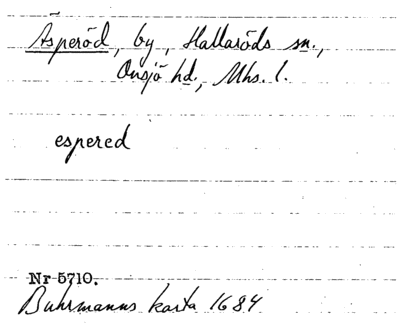 Äsperöd, by, Hallaröds sn.,
Onsjö hd., Mhs. l.
espered
Nr 5710.
Buhrmanns karta 1684